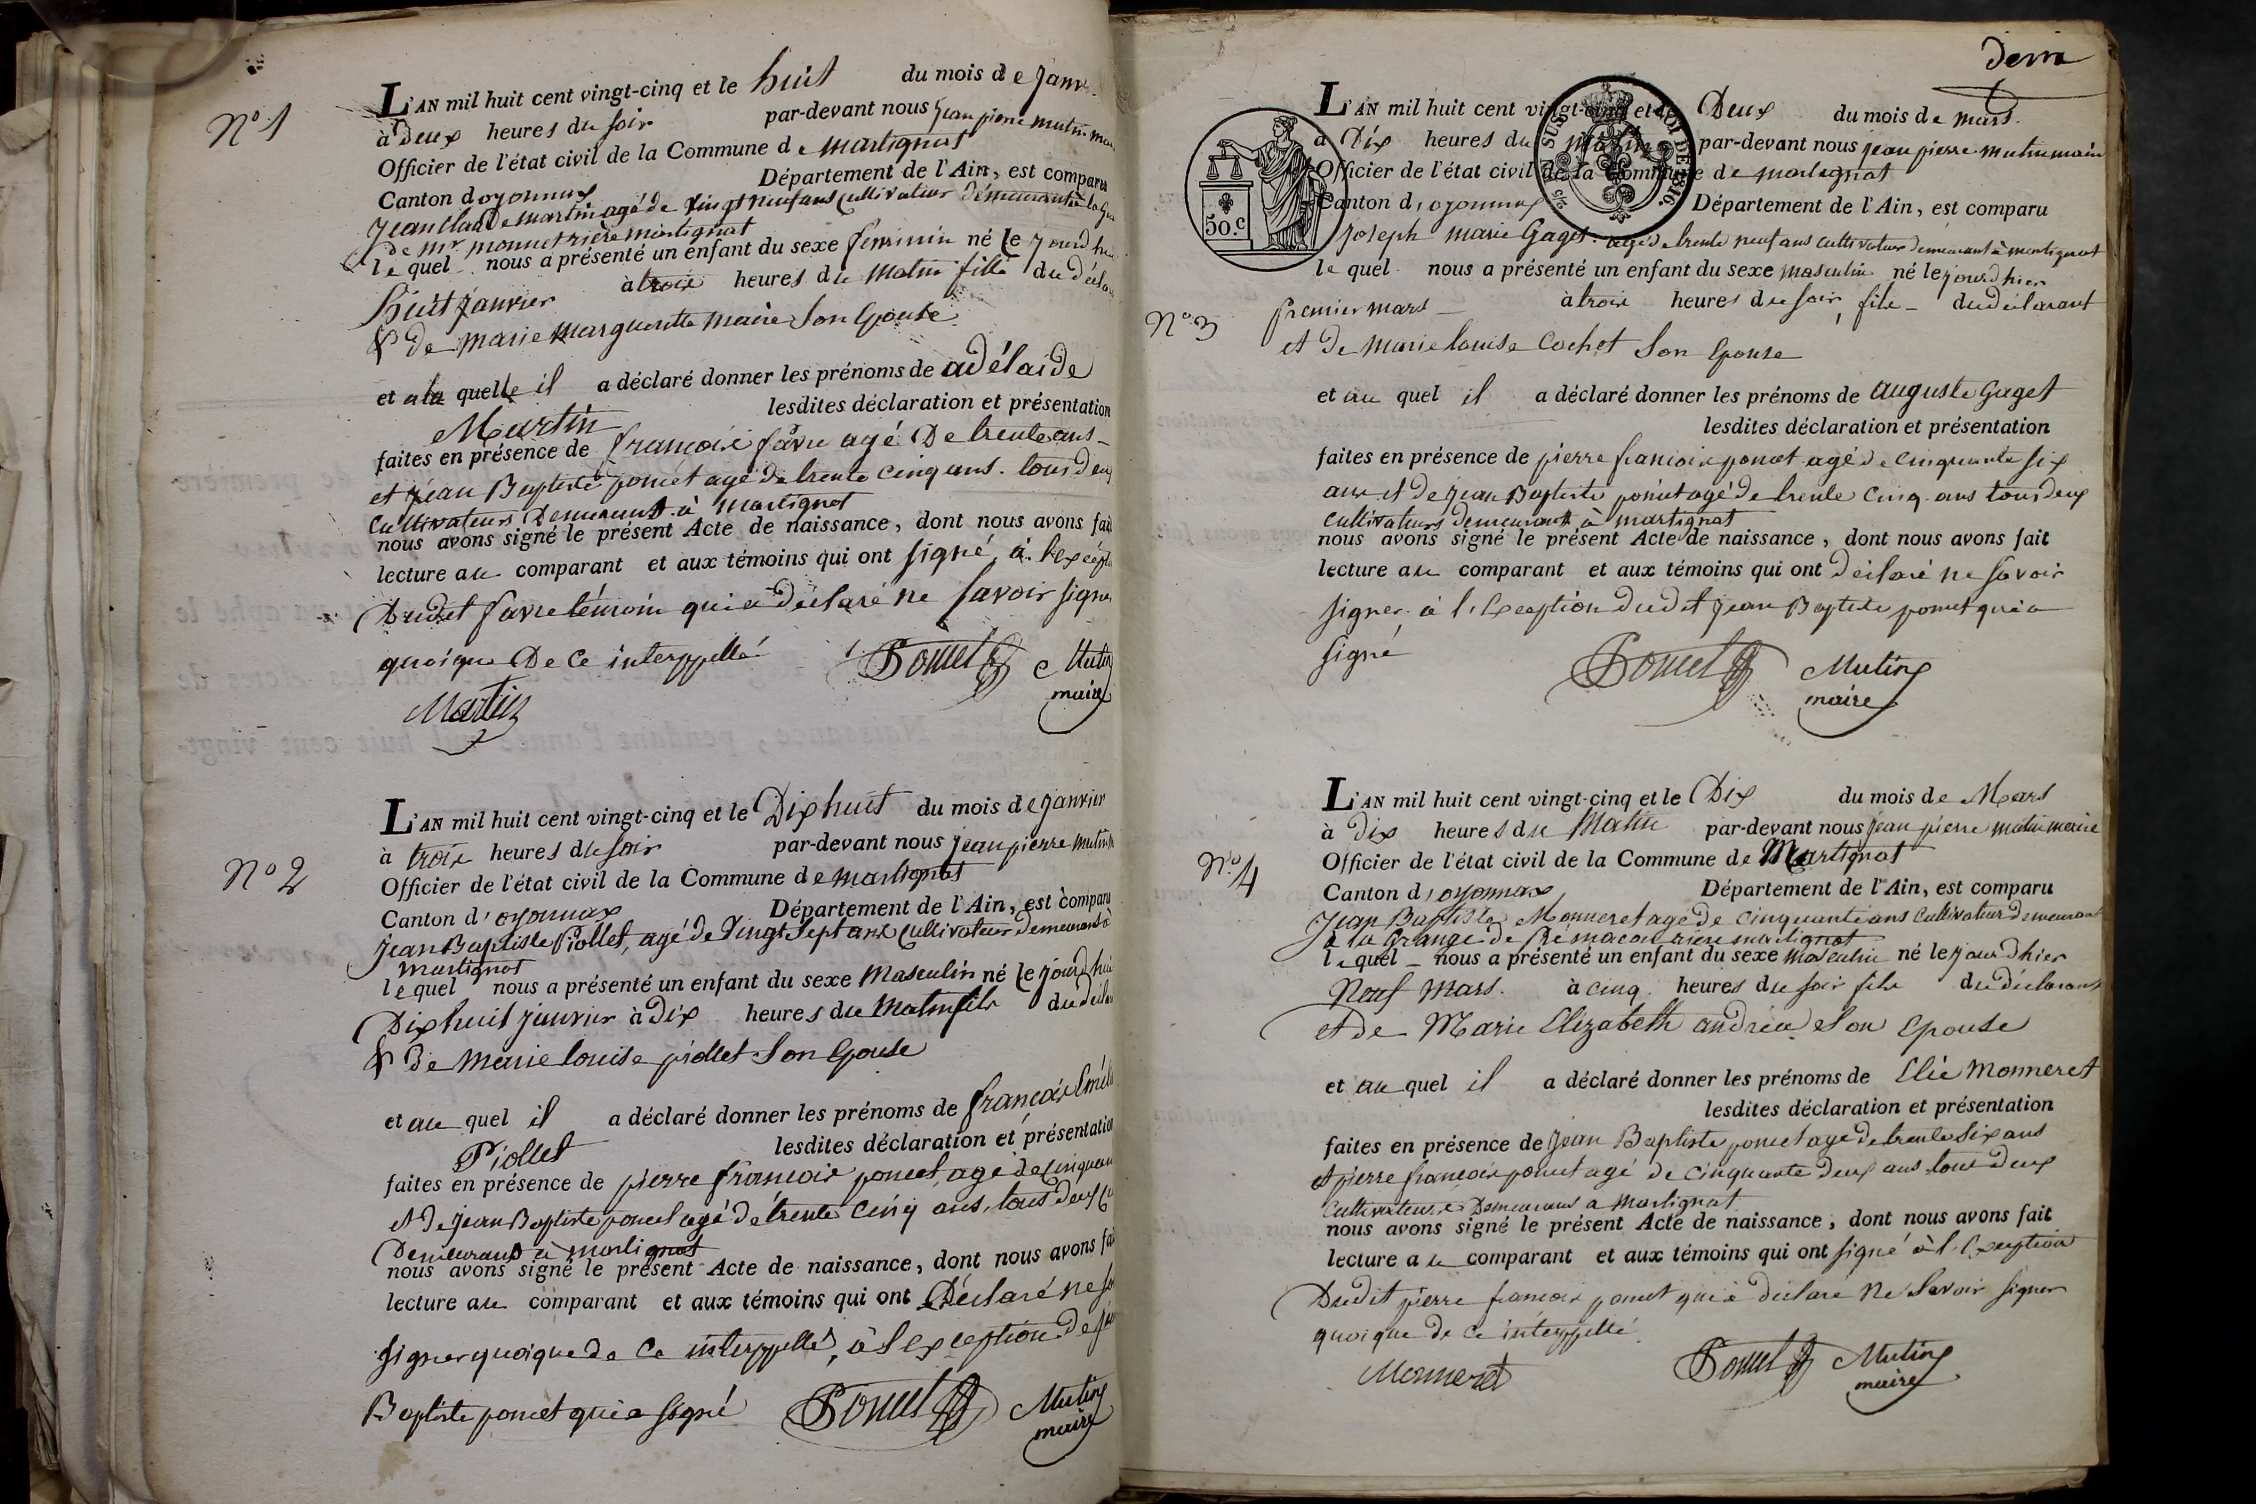 N.o 1
L'AN mil huit cent vingt-cinq et le huit du mois de Janv
à Deux heures du soir par-devant nous jean pierre mutin
Officier de l'état civil de la Commune de martignat
Canton d'oyonnax Département de l'Ain, est comparu
Jean Claude Martin agé de vingt neuf ans Cultivateur Demeurant
de mr. monnet rière martignat
le quel nous a présenté un enfant du sexe feminin né le jourd'hui
huit janvier à trois heures du matin fille du décla
& de marie marguerite maire son Epouse
et a la quelle il a déclaré donner les prénoms de adélaide
Martin lesdites déclaration et présentation
faites en présence de françois favre agé De trente ans
et jean Baptiste poncet agé de trente cinq ans. tous deux
Cultivateurs Demeurant à martignat
nous avons signé le présent Acte de naissance, dont nous avons fait
lecture au comparant et aux témoins qui ont signé, à l'excepti
Dudit favre témoin qui a déclaré ne savoir signer
quoique De ce interppellé
Poncet Mutin
maire
Martin
N.o 2
L'AN mil huit cent vingt-cinq et le Dix huit du mois de janvier
à trois heures du soir par-devant nous jean pierre mutin
Officier de l'état civil de la Commune de martignat
Canton d'oyonnax Département de l'Ain, est comparu
jean Baptiste Piollet, agé de vingt sept ans Cultivateur demeurant à
martignat
le quel nous a présenté un enfant du sexe Masculin né le jourd'hui
Dix huit janvier à dix heures du Matin fils du décla
& de marie louise piollet son Epouse
et au quel il a déclaré donner les prénoms de françois
Piollet lesdites déclaration et présentation
faites en présence de pierre françois poncet, agé de Cinquan
et de jean Baptiste poncet agé de trente cinq ans, tous deux
Demeurans à martignat
nous avons signé le présent Acte de naissance, dont nous avons fai
lecture au comparant et aux témoins qui ont Déclaré ne
signer quoique de Ce interppellés, à l'exception de
Baptiste poncet qui a signé Poncet Mutin
maire
L'AN mil huit cent vingt-cinq et le Deux du mois de mars.
à Dix heures du matin par-devant nous jean pierre mutin maire
Officier de l'état civil de la Commune de martignat
Canton d'oyonnax Département de l'Ain, est comparu
50.c
ROI DE
1816.
Joseph marie Gaget agé de trente neuf ans cultivateur demeurant à martignat
le quel nous a présenté un enfant du sexe masculin né le jour d'hier
N.o 3
premier mars à trois heures du soir, fils du déclarant
et de marie louise Cochet son Epouse
et au quel il a déclaré donner les prénoms de auguste Gaget
lesdites déclaration et présentation
faites en présence de pierre francois poncet agé de cinquante six
ans et de jean Baptiste poncet agé de trente cinq ans tous deux
cultivateurs demeurant à martignat
nous avons signé le présent Acte de naissance, dont nous avons fait
lecture au comparant et aux témoins qui ont déclaré ne savoir
signer à l'Exception dudit jean Baptiste poncet qui a
signé
Poncet Mutin
maire
N.o 4
L'AN mil huit cent vingt-cinq et le Dix du mois de Mars
à dix heures du Matin par-devant nous jean pierre mutin maire
Officier de l'état civil de la Commune de Martignat
Canton d'oyonnax Département de l'Ain, est comparu
Jean Baptiste Monneret agé de cinquante ans Cultivateur demeurant
à la Grange de rière martignat
le quel nous a présenté un enfant du sexe masculin né le jour d'hier
Neuf mars. à cinq heures du soir fils du déclarant
et de Marie Elizabeth andréa son Epouse
et au quel il a déclaré donner les prénoms de Elie Monneret
lesdites déclaration et présentation
faites en présence de jean Baptiste poncet agé de trente six ans
et pierre françois poncet agé de cinquante deux ans tous deux
Cultivateurs Demeurans a martignat
nous avons signé le présent Acte de naissance, dont nous avons fait
lecture au comparant et aux témoins qui ont signé à l'Exception
Dudit pierre francois poncet qui a déclaré ne savoir signer
quoique de ce interppellé
Monneret Poncet Mutin
maire